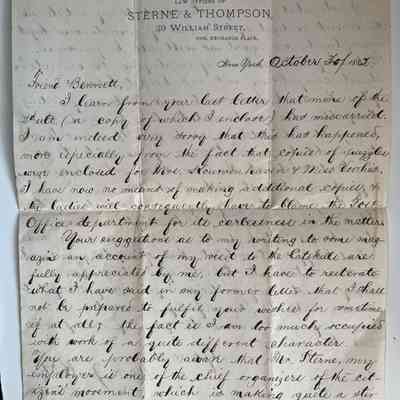 LAW OFFICES OF
STERNE & THOMPSON,
30 WILLIAM STREET,
COR. EXCHANGE PLACE.
New York, October 1882.
Friend Bennett,
I learn from your last letter that mine of the
(a copy of which I enclose) has miscarried.
I am indeed very sorry that this has happened,
more especially from the fact that copies of puzzles
were enclosed for Mrs. & Miss
I have now no means of making additional copies &
the ladies will consequently have to blame the Post
Office department for its carelessness in the matter.
Your suggestions as to my writing to some mag-
azine an account of my visit to the Catskills are
fully appreciated by me, but I have to reiterate
what I have said in my former letter that I shall
not be prepared to fulfil your wishes for sometime,
if at all; the fact is I am too much occupied
with work of a quite different character.
You are probably aware that Mr. Sterne, my
employer is one of the chief organizers of the cit-
izens' movement, which is making quite a stir